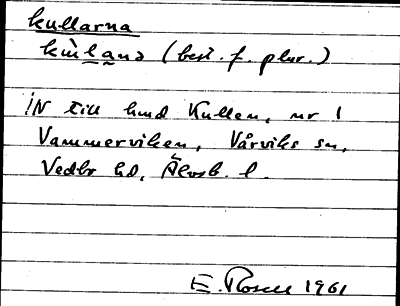 kullarna
kùlana (best. f. plur.)
IN till hmd Kullen, nr 1
Vammerviken, Vårviks sn,
Vedbo hd, Älvsb. l.
E. Rosell 1961